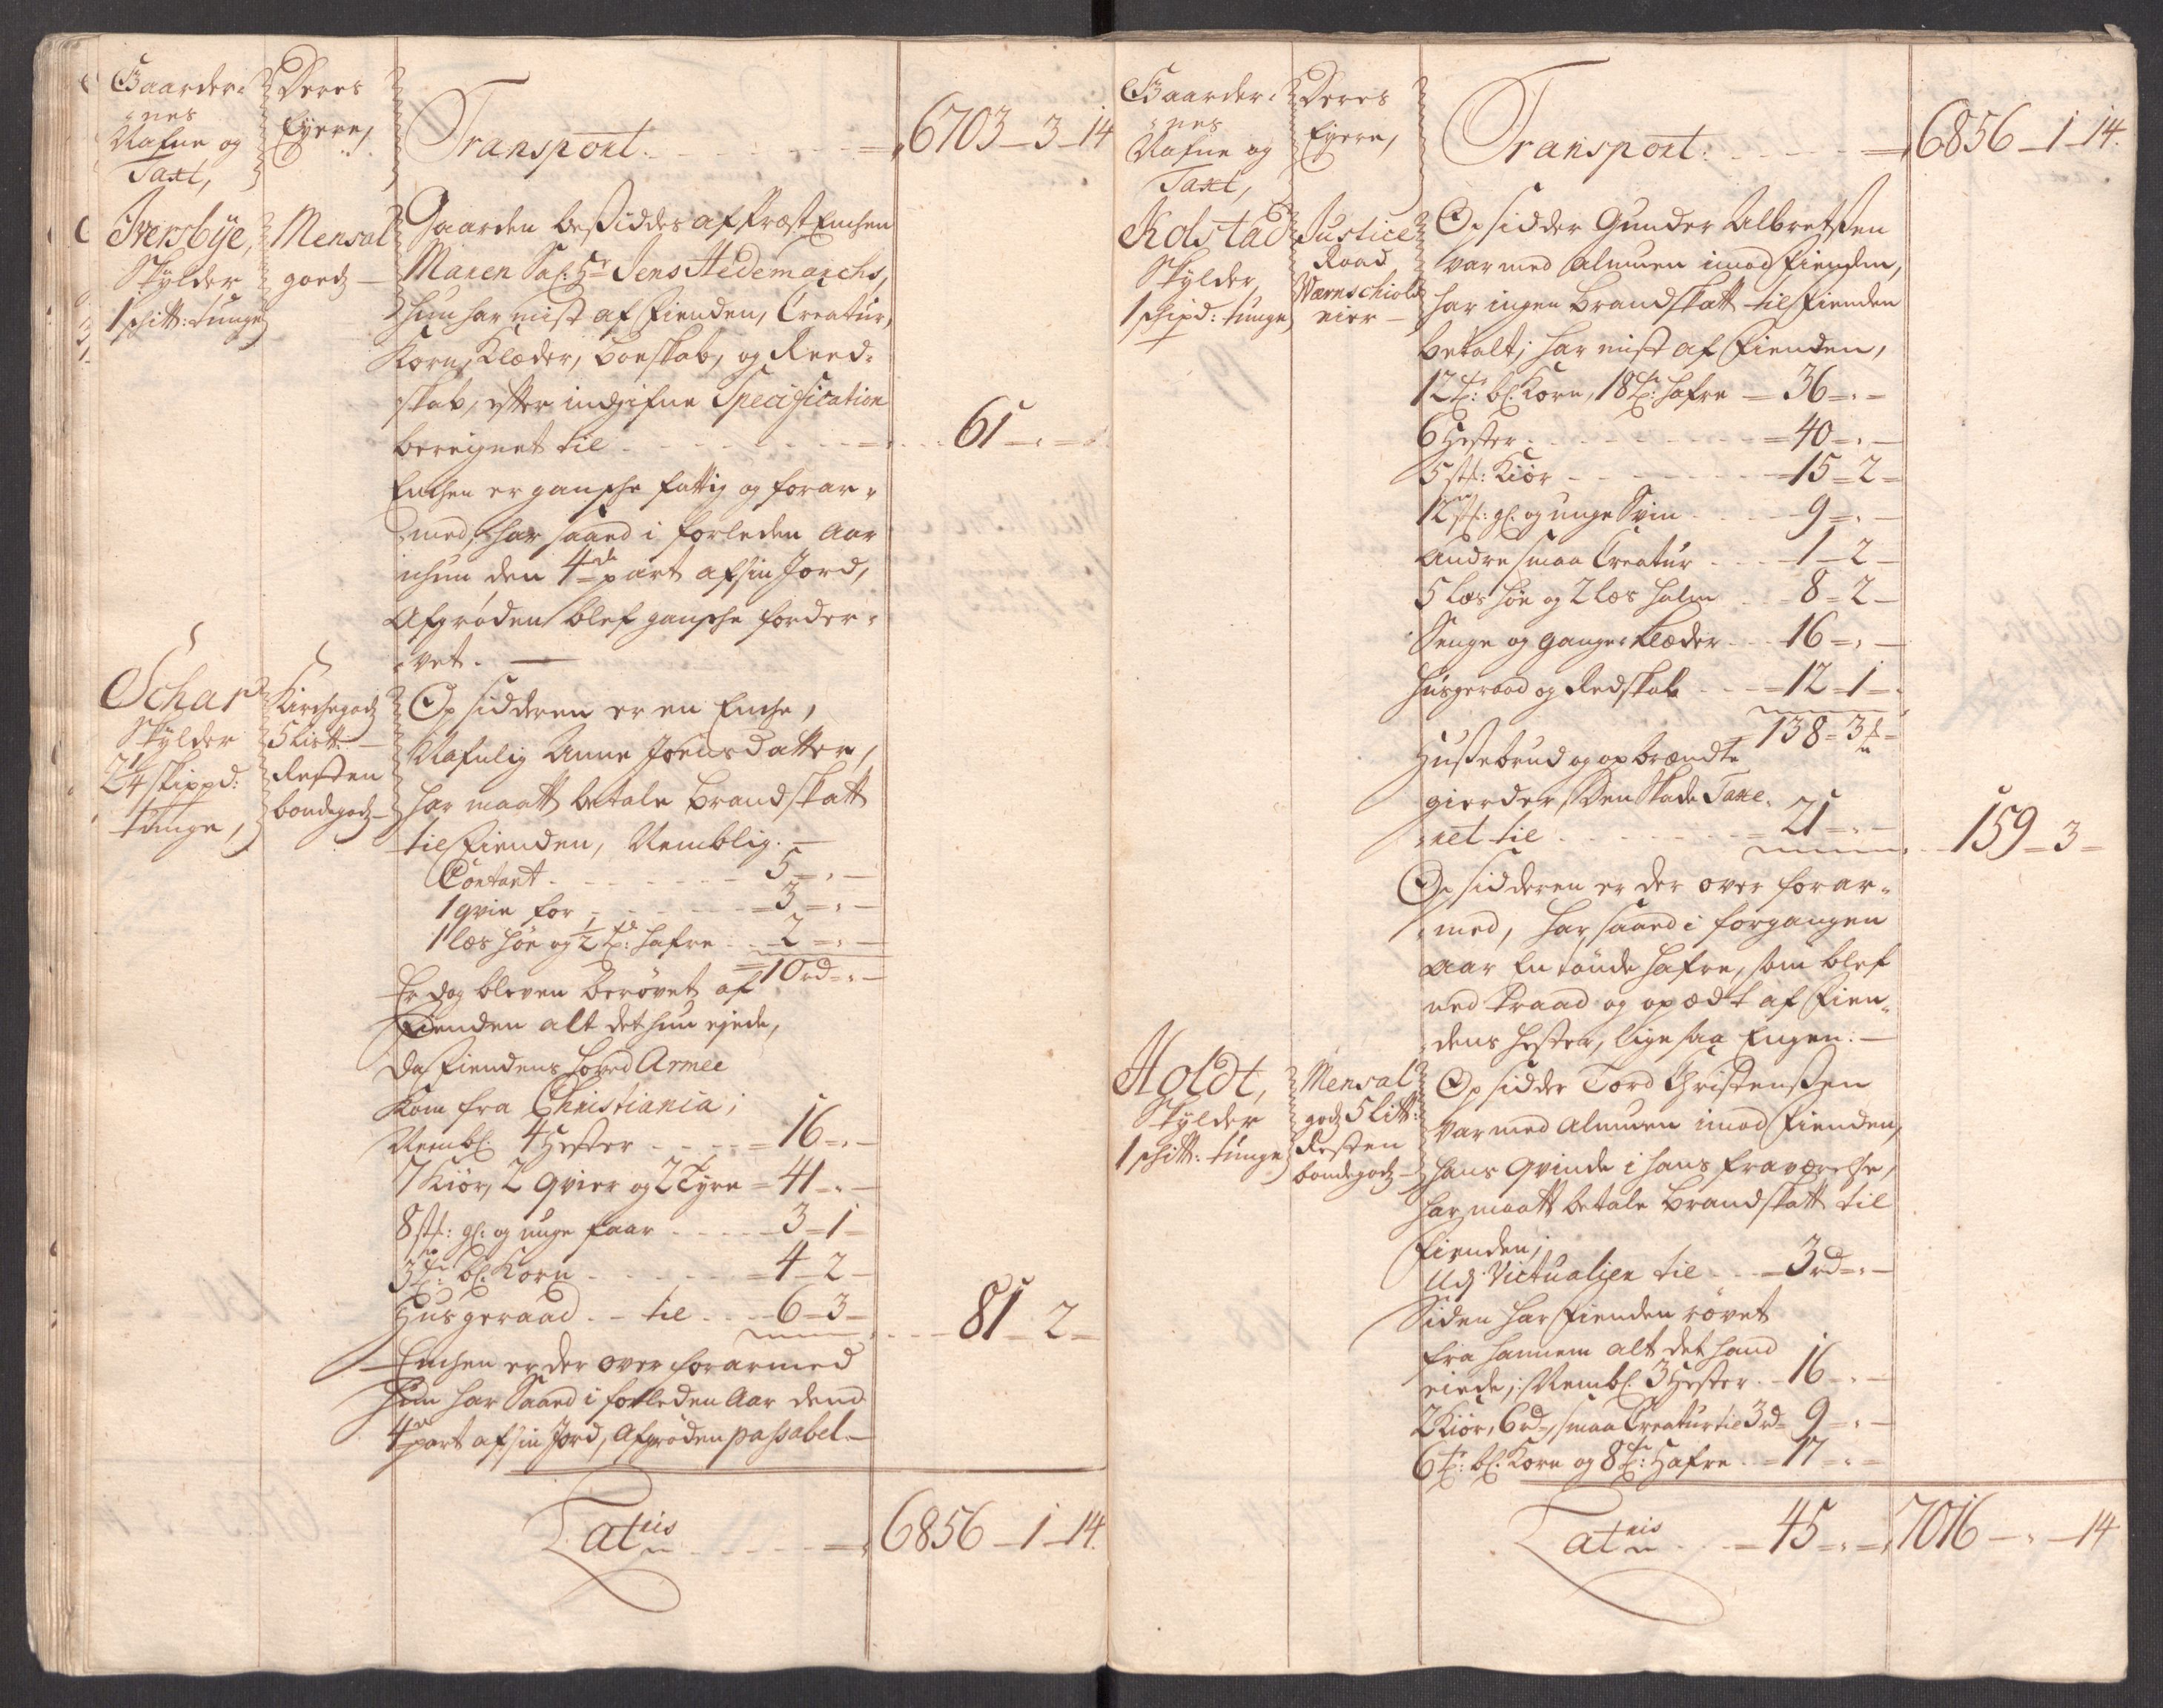 Gaarder-
nes
Nafne og
Taxt,
Deres
Eyere,
Transport. = 6703 – 3 – 14
Iversbÿe,
Skylder
1 schitt: tunge
Mensal
goedz –
Gaarden besiddes af Præst Enchen
Maren Sal: Hr Jens Hedemarchs,
hun har mist af Fienden, Creatur,
Korn, Klæder, boeskab, og Reed-
skab, efter indgifne Specification
beregnet til – 61 – " –
Enchen er gansche fattig og forar-
med, har saaed i forleden Aar
ichun den 4de part af sin Jord,
Afgrøden blef gansche forder-
vet. –
Schar
Skylder
2¼ skippd:
tunge,
Kirchegodz
5 list: –
Resten
bondegodz –
Opsidderen er en Enche,
Nafnlig Anne Joensdatter,
har maatt betale brandskatt
til Fienden, Nemblig. –
Contant – 5 – " –
1 qvie for – 3 = " –
1 læs høe og ½ td: hafre – 2 = " –
10 rd – " –
Er dog bleven berøvet af
Fienden alt det hun ejede,
da Fiendens hoved Armee
Kom fra Christiania;
Nembl: 4 Hester – 16 = " –
7 Kiør, 2 qvier og 2 Tyre = 41 – " –
8 st: gl: og unge faar – 3 – 1 –
3 tr: bl: Korn – 4 – 2 –
Husgeraad – til – 6 – 3 –
81 – 2 –
Enchen er der over forarmed
hun har Saaed i forleden Aar dend
4 part af sin Jord, Afgrøden passabel –
Lateris = 6856 – 1 – 14.
Gaarder-
nes
Nafne og
Taxt,
Deres
Eyere,
Transport: = 6856 – 1 – 14.
Kolstad
Skylder,
1 schipd: tunge
Justice
Raad
Wærnschiold
eier –
Opsidder Gunder Albretsen
var med Almuen imod Fienden,
har ingen brandskatt til Fienden
betalt; har mist af Fienden,
12 tr: bl: Korn, 18 tr: hafre – 36 – " –
6 Hester – 40 – " –
5 st: Kiør – 15 – 2 –
12 st: gl: og unge Svin – 9 – " –
andre smaa Creatur – 1 – 2 –
5 læs høe og 2 læs halm – 8 – 2 –
Senge og gange klæder – 16 – " –
husgeraad og Redskab – 12 – 1 –
138 = 3 –
Hussebrud og opbrændte
gierder, den skade Taxe-
ret til – 21 – " – 159 – 3 –
Opsidderen er der over forar-
med, har saaed i forgangen
aar En tønde hafre, som blef
ned traad og opædt af Fien-
dens hester, lige saa Engen: –
Holdt,
Skylder
1 schitt: tunge
Mensal
godz 5 litt:
Resten
bondegodz –
Opsidder Tord Christensen
var med Almuen imod Fienden,
hans qvinde i hans fraværelse,
har maatt betale brandskatt til
Fienden;
Udj Victualier til – 3 rd – " –
Siden har Fienden røvet
fra hannem alt det hand
eiede; Nembl: 3 Hester – 16 – " –
2 Kiør, 6 rd –, smaa Creatur til 3 rd – 9 – " –
6 tr: bl: Korn og 8 tr: Hafre – 17 – " –
Lateris – 45 – " – 7016 – " – 14